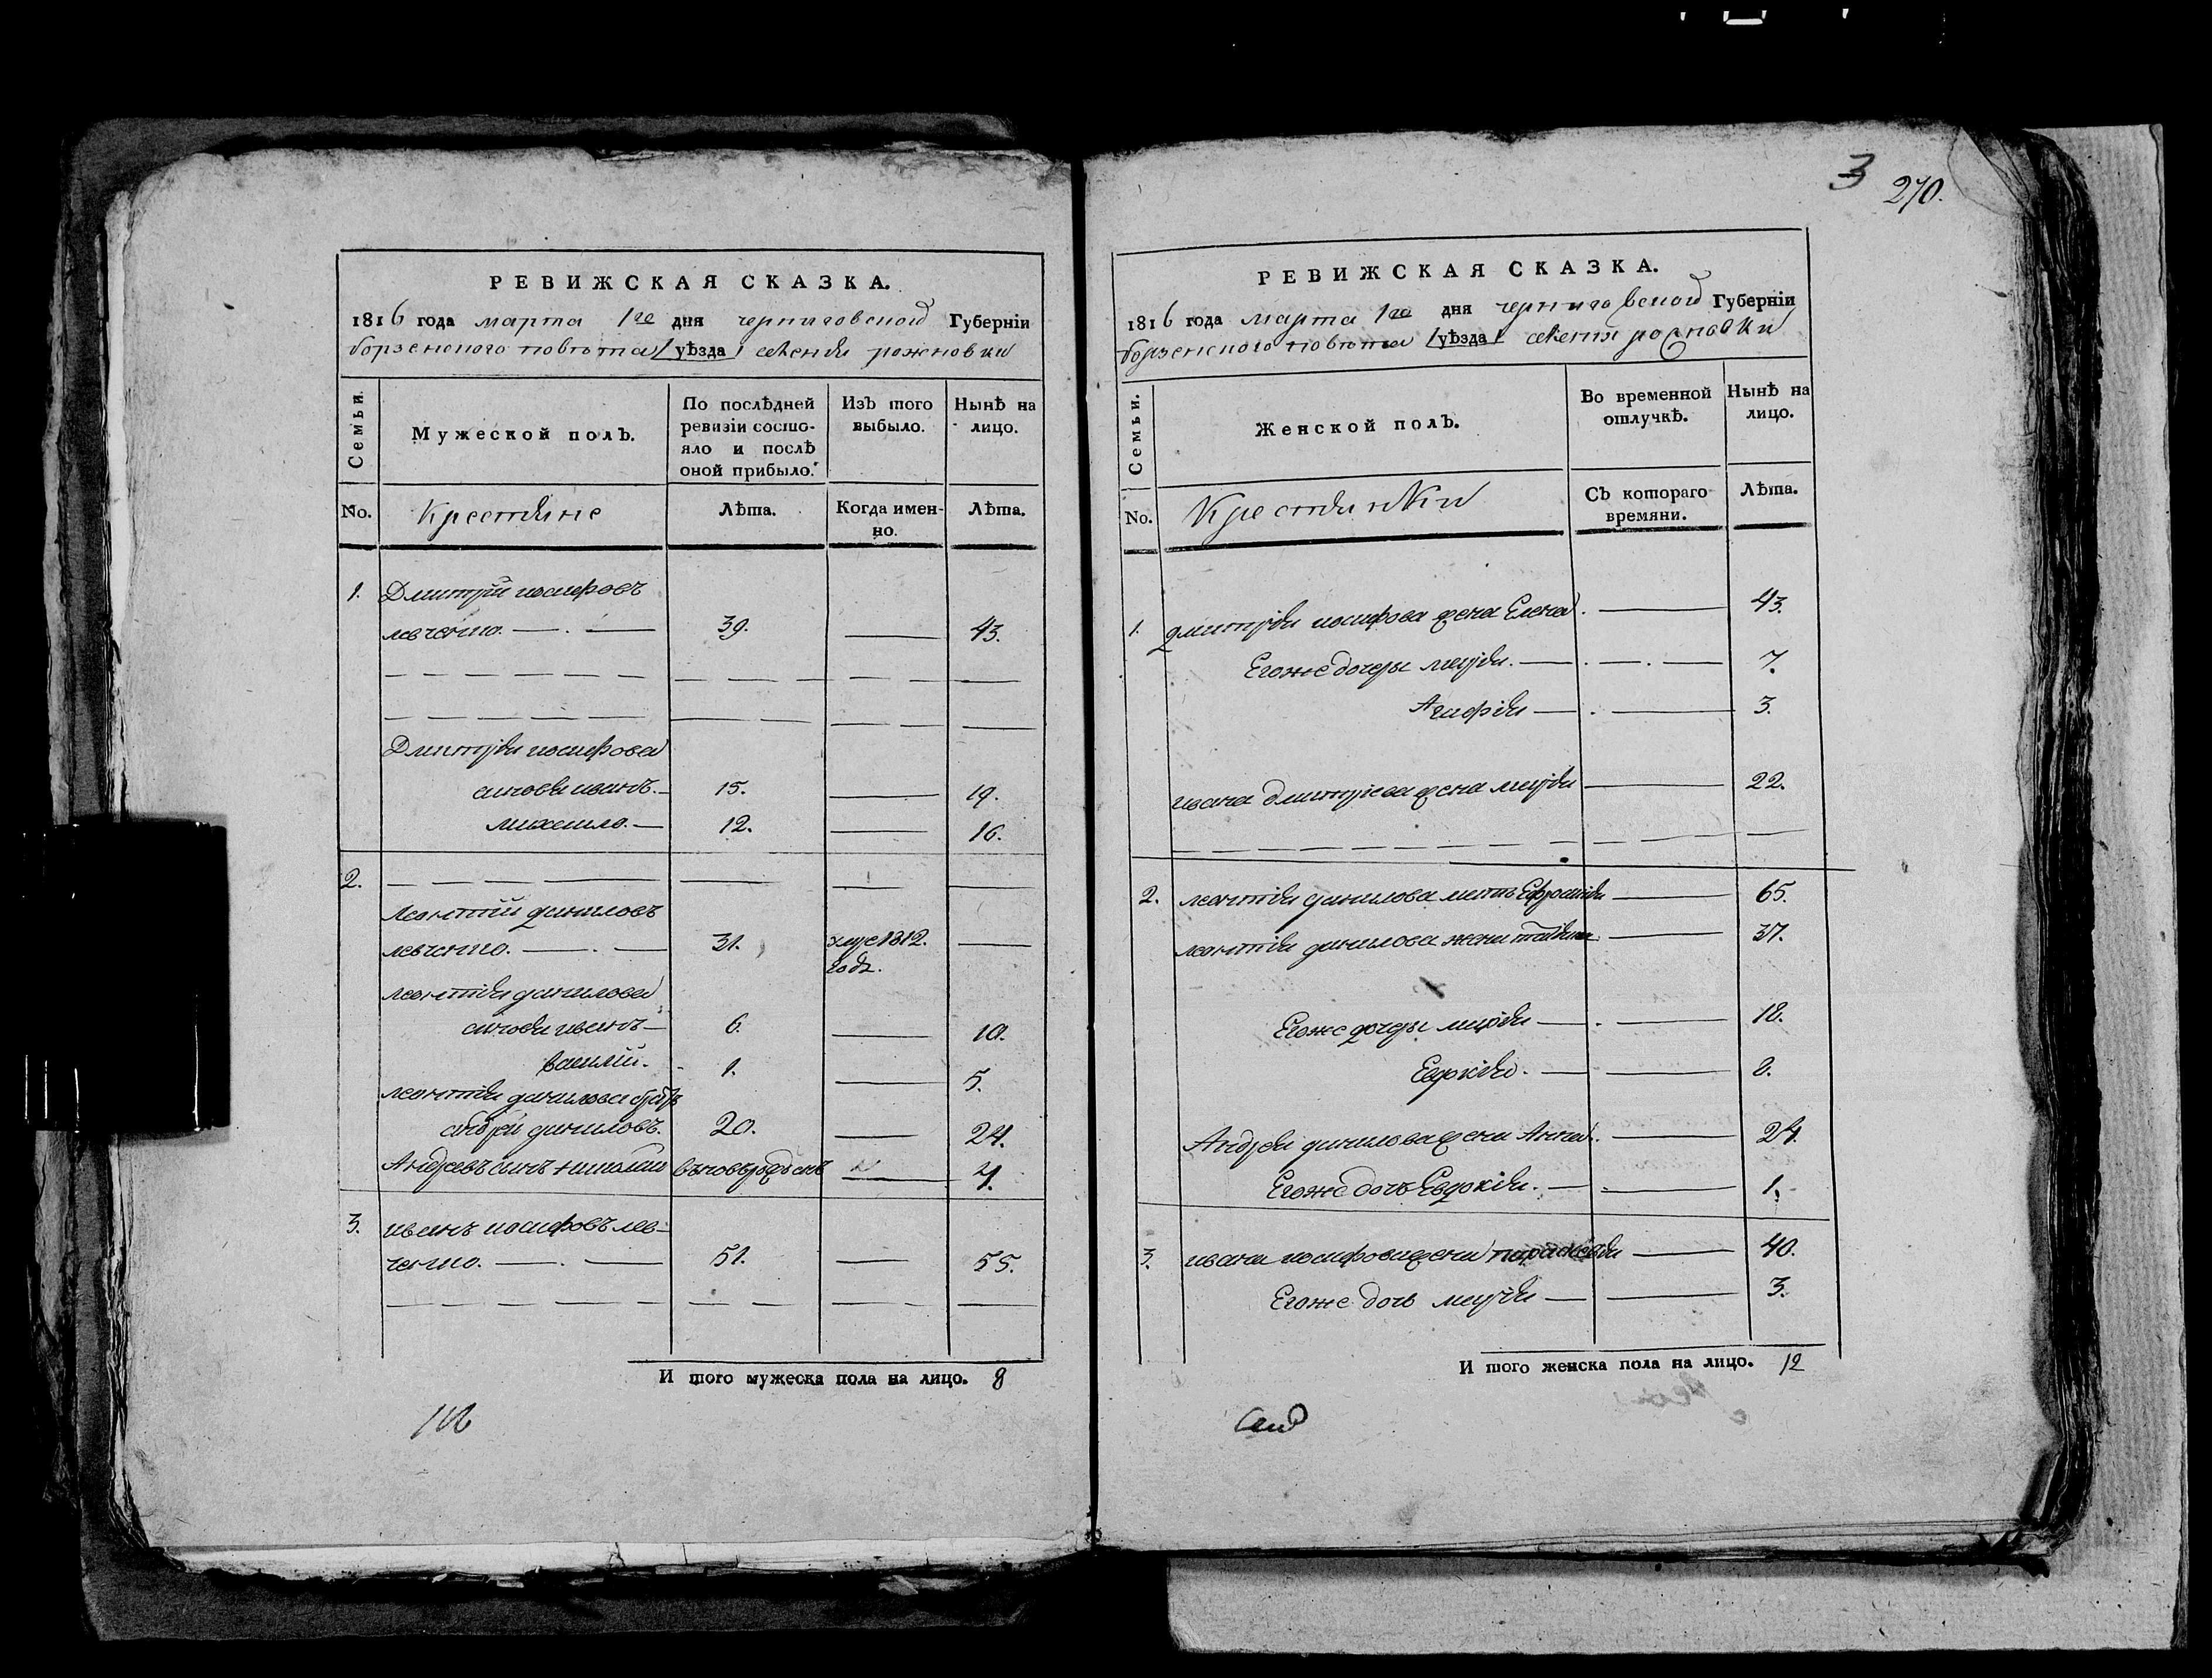 РЕВИЖСКАЯ СКАЗКА.
1816 года марта 1го дня черниговской Губерніи
борзенского повѣта уѣзда селенія рожновки
Семьи.
Мужеской полъ.
По послѣдней ревизіи состояло и послѣ оной прибыло.
Изъ того выбыло.
Нынѣ на лицо.
No. Крестяне
Лѣта.
Когда именно.
Лѣта.
1. Дмитрій иосифовъ
левченко. 39. 43.
Дмитрія иосифова
синовя иванъ. 15. 19.
михаило. 12. 16.
2.
Леонтій даниловъ
левченко. 31. 1812. 
годѣ.
леонтія данилова
синовя иванъ 6. 10.
василій. 1. 5.
леонтія данилова братъ
андрей даниловъ. 20. 24.
Андреевъ синъ николай вновьрожденъ 4.
3. иванъ иосифовъ лев-
ченко. 51. 55.
И того мужеска пола на лицо. 8
3 270.
РЕВИЖСКАЯ СКАЗКА.
1816 года марта 1го дня черниговской Губерніи
борзенского повѣта уѣзда селенія рожновки
Семьи.
Женской полъ.
Во временной отлучкѣ.
Нынѣ на лицо.
No. Крестянки
Съ котораго времяни.
Лѣта.
1. дмитрія иосифова жена Елена. 43.
Егоже дочеры марія. 7.
Агафія 3.
ивана дмитриева жена марія 22.
2. леонтія данилова мать Ефросинія 65.
леонтія данилова жена 37.
Егоже дочеры марія 18.
Евдокія. 8.
Андрея данилова жена Анна. 24.
Егоже дочъ Евдокія. 1.
3. ивана иосифова жена параскевія 40.
Егоже дочь марія 3.
И того женска пола на лицо. 12